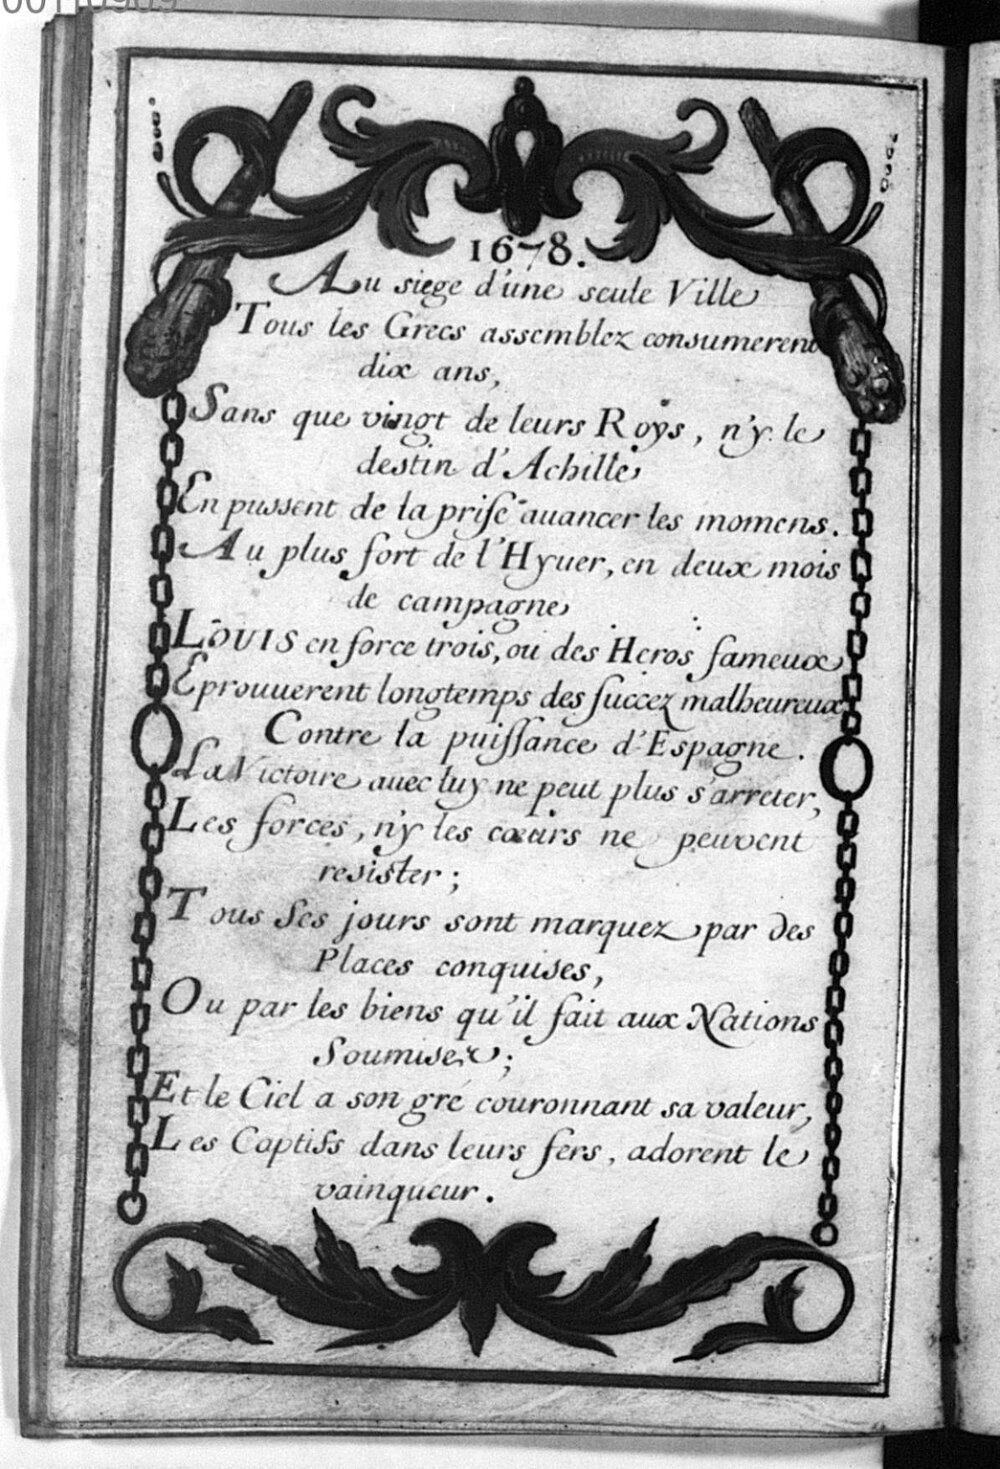 1678.
Au siege d'une seule Ville
Tous les Grecs assemblez consumerent
dix ans,
Sans que vingt de leurs Roÿs, n'y le
destin d'Achille
En pussent de la prise auancer les momens.
Au plus fort de l'Hyuer, en deux mois
de campagne
LOUIS en force trois, ou des Heros fameux
Eprouuerent longtemps des succez malheureux
Contre la puissance d'Espagne.
La Victoire auec luy ne peut plus s'arreter,
Les forces, n'y les cœurs ne peuvent
resister;
Tous Ses jours sont marquez par des
Places conquises,
Ou par les biens qu'il fait aux Nations
Soumises;
Et le Ciel a son gré couronnant sa valeur,
Les Captifs dans leurs fers, adorent le
vainqueur.